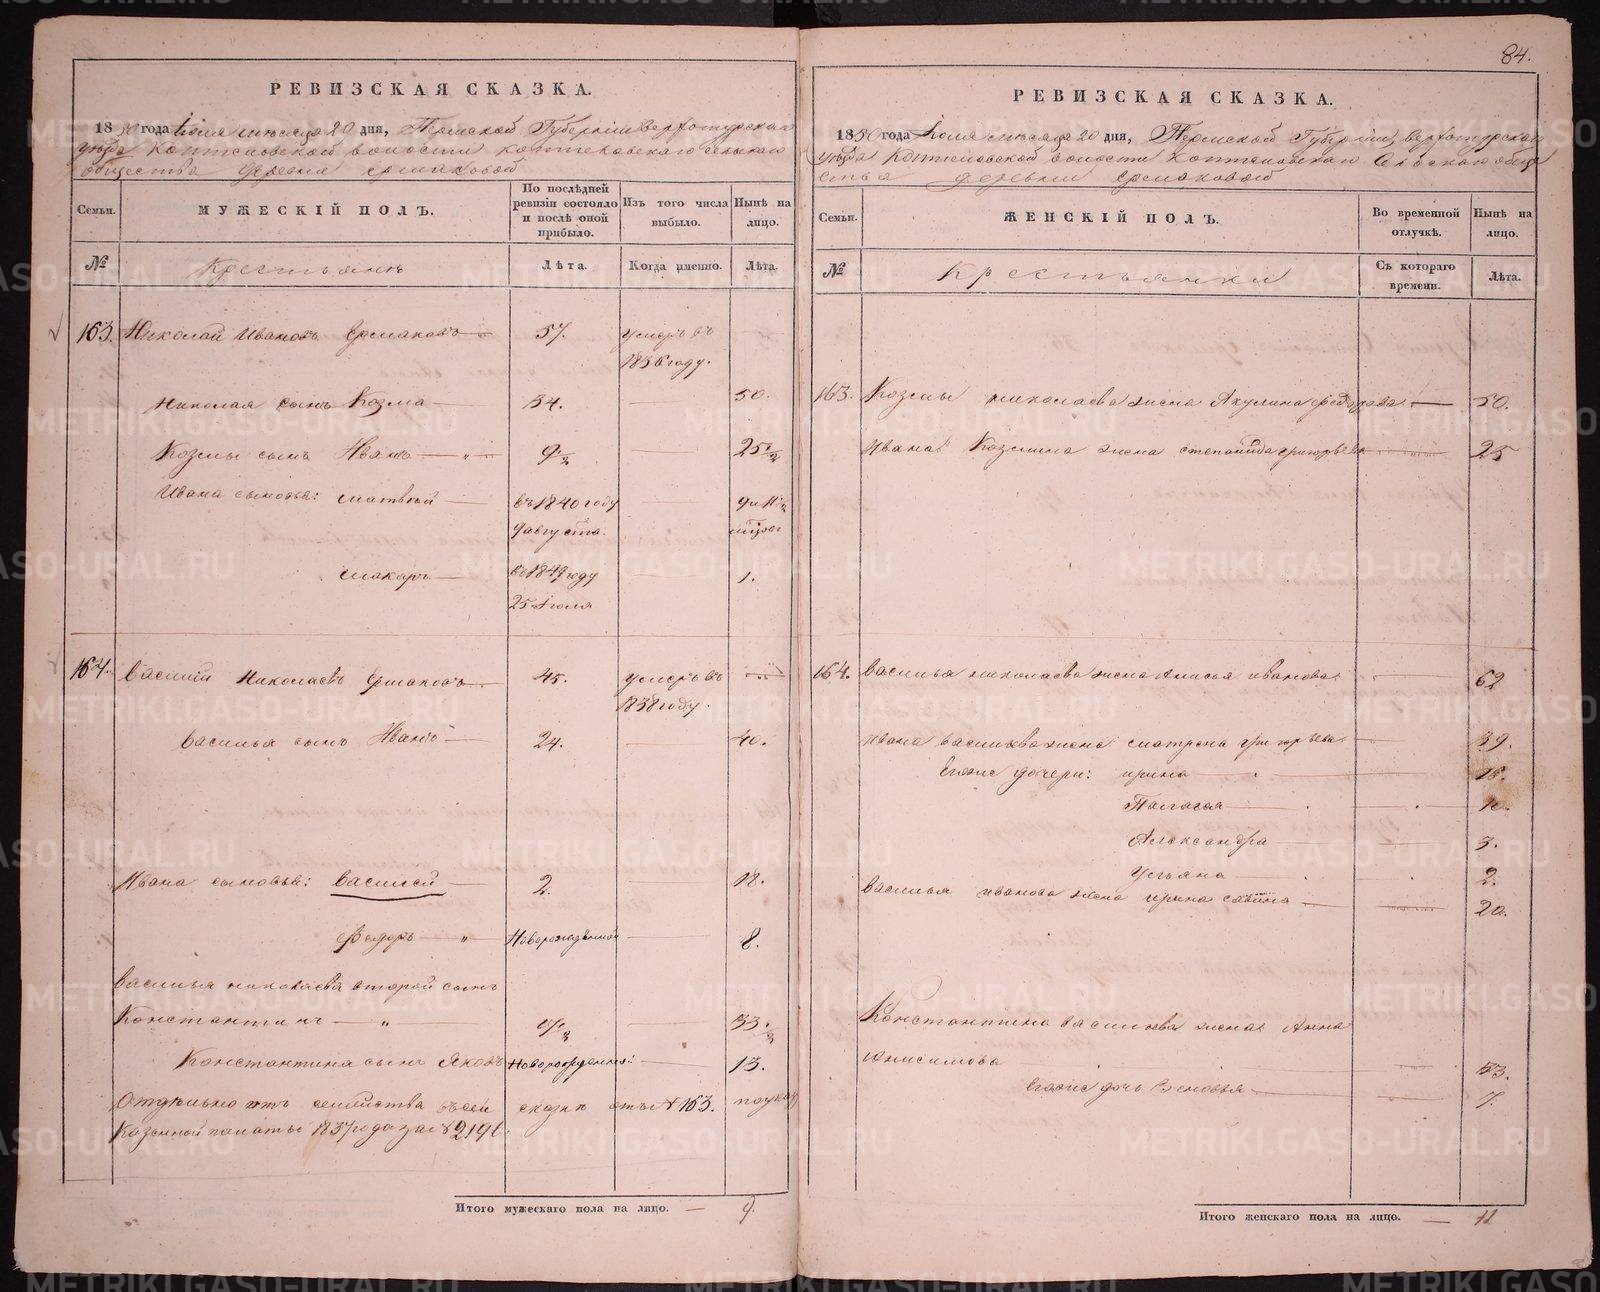 84.
РЕВИЗСКАЯ СКАЗКА.
1850 года Іюля мѣсяца 20 дня, Пермской Губерніи Верхотурскаго
уѣзда Коптеловской волости Коптеловскаго сельскаго
общества деревни Ермаковой
Семьи.
МУЖЕСКІЙ ПОЛЪ.
По послѣдней ревизіи состояло и послѣ оной прибыло.
Изъ того числа выбыло.
Нынѣ на лицо.
№ Крестьяне Лѣта. Когда именно. Лѣта.
163. Николай Ивановъ Ермаковъ 57. умеръ въ
1836 году.
Николая сынъ Козма 34. 50.
Козмы сынъ Иванъ 9 1/2 25 1/2
Ивана сыновья: Матвѣй въ 1840 году 9 и 11 1/2
9 августа.
Макаръ въ 1849 году 1.
25 Іюля
164. Василій Николаевъ Ермаковъ 45. умеръ въ
1838 году.
Василья сынъ Иванъ 24. 40.
Ивана сыновья: Василей 2. 18.
Федоръ Новорожденной 8.
Василья Николаева второй сынъ
Константинъ 33 1/2
Константина сынъ Яковъ Новорожденной 13.
Отдѣльно отъ семейства въ сей сказки отъ № 163. по указу
Казенной палаты 1837 года за № 2196.
Итого мужескаго пола на лицо. — 9.
РЕВИЗСКАЯ СКАЗКА.
1850 года Іюля мѣсяца 20 дня, Пермской Губерніи, Верхотурскаго
уѣзда Коптеловской волости Коптеловскаго Сельскаго обще
ства деревни Ермаковой
Семьи.
ЖЕНСКІЙ ПОЛЪ.
Во временной отлучкѣ.
Нынѣ на лицо.
№ Крестьянки Съ котораго времени. Лѣта.
163. Козмы Николаева жена Акулина Федорова 50.
Ивана Козмина жена Степанида Григорьева 25
164. Василья Николаева жена Анисья Иванова 62
Ивана Васильева жена Матрена Григорьева 39.
Его же дочери: Ирина 18.
Палагея
Александра 3.
Ульяна 2.
Василья Иванова жена Ирина Савина 20.
Константина Васильева жена Анна
Анисимова 33.
Его же дочь Зеновья 7.
Итого женскаго пола на лицо. — 11
METRIKI.GASO-URAL.RU